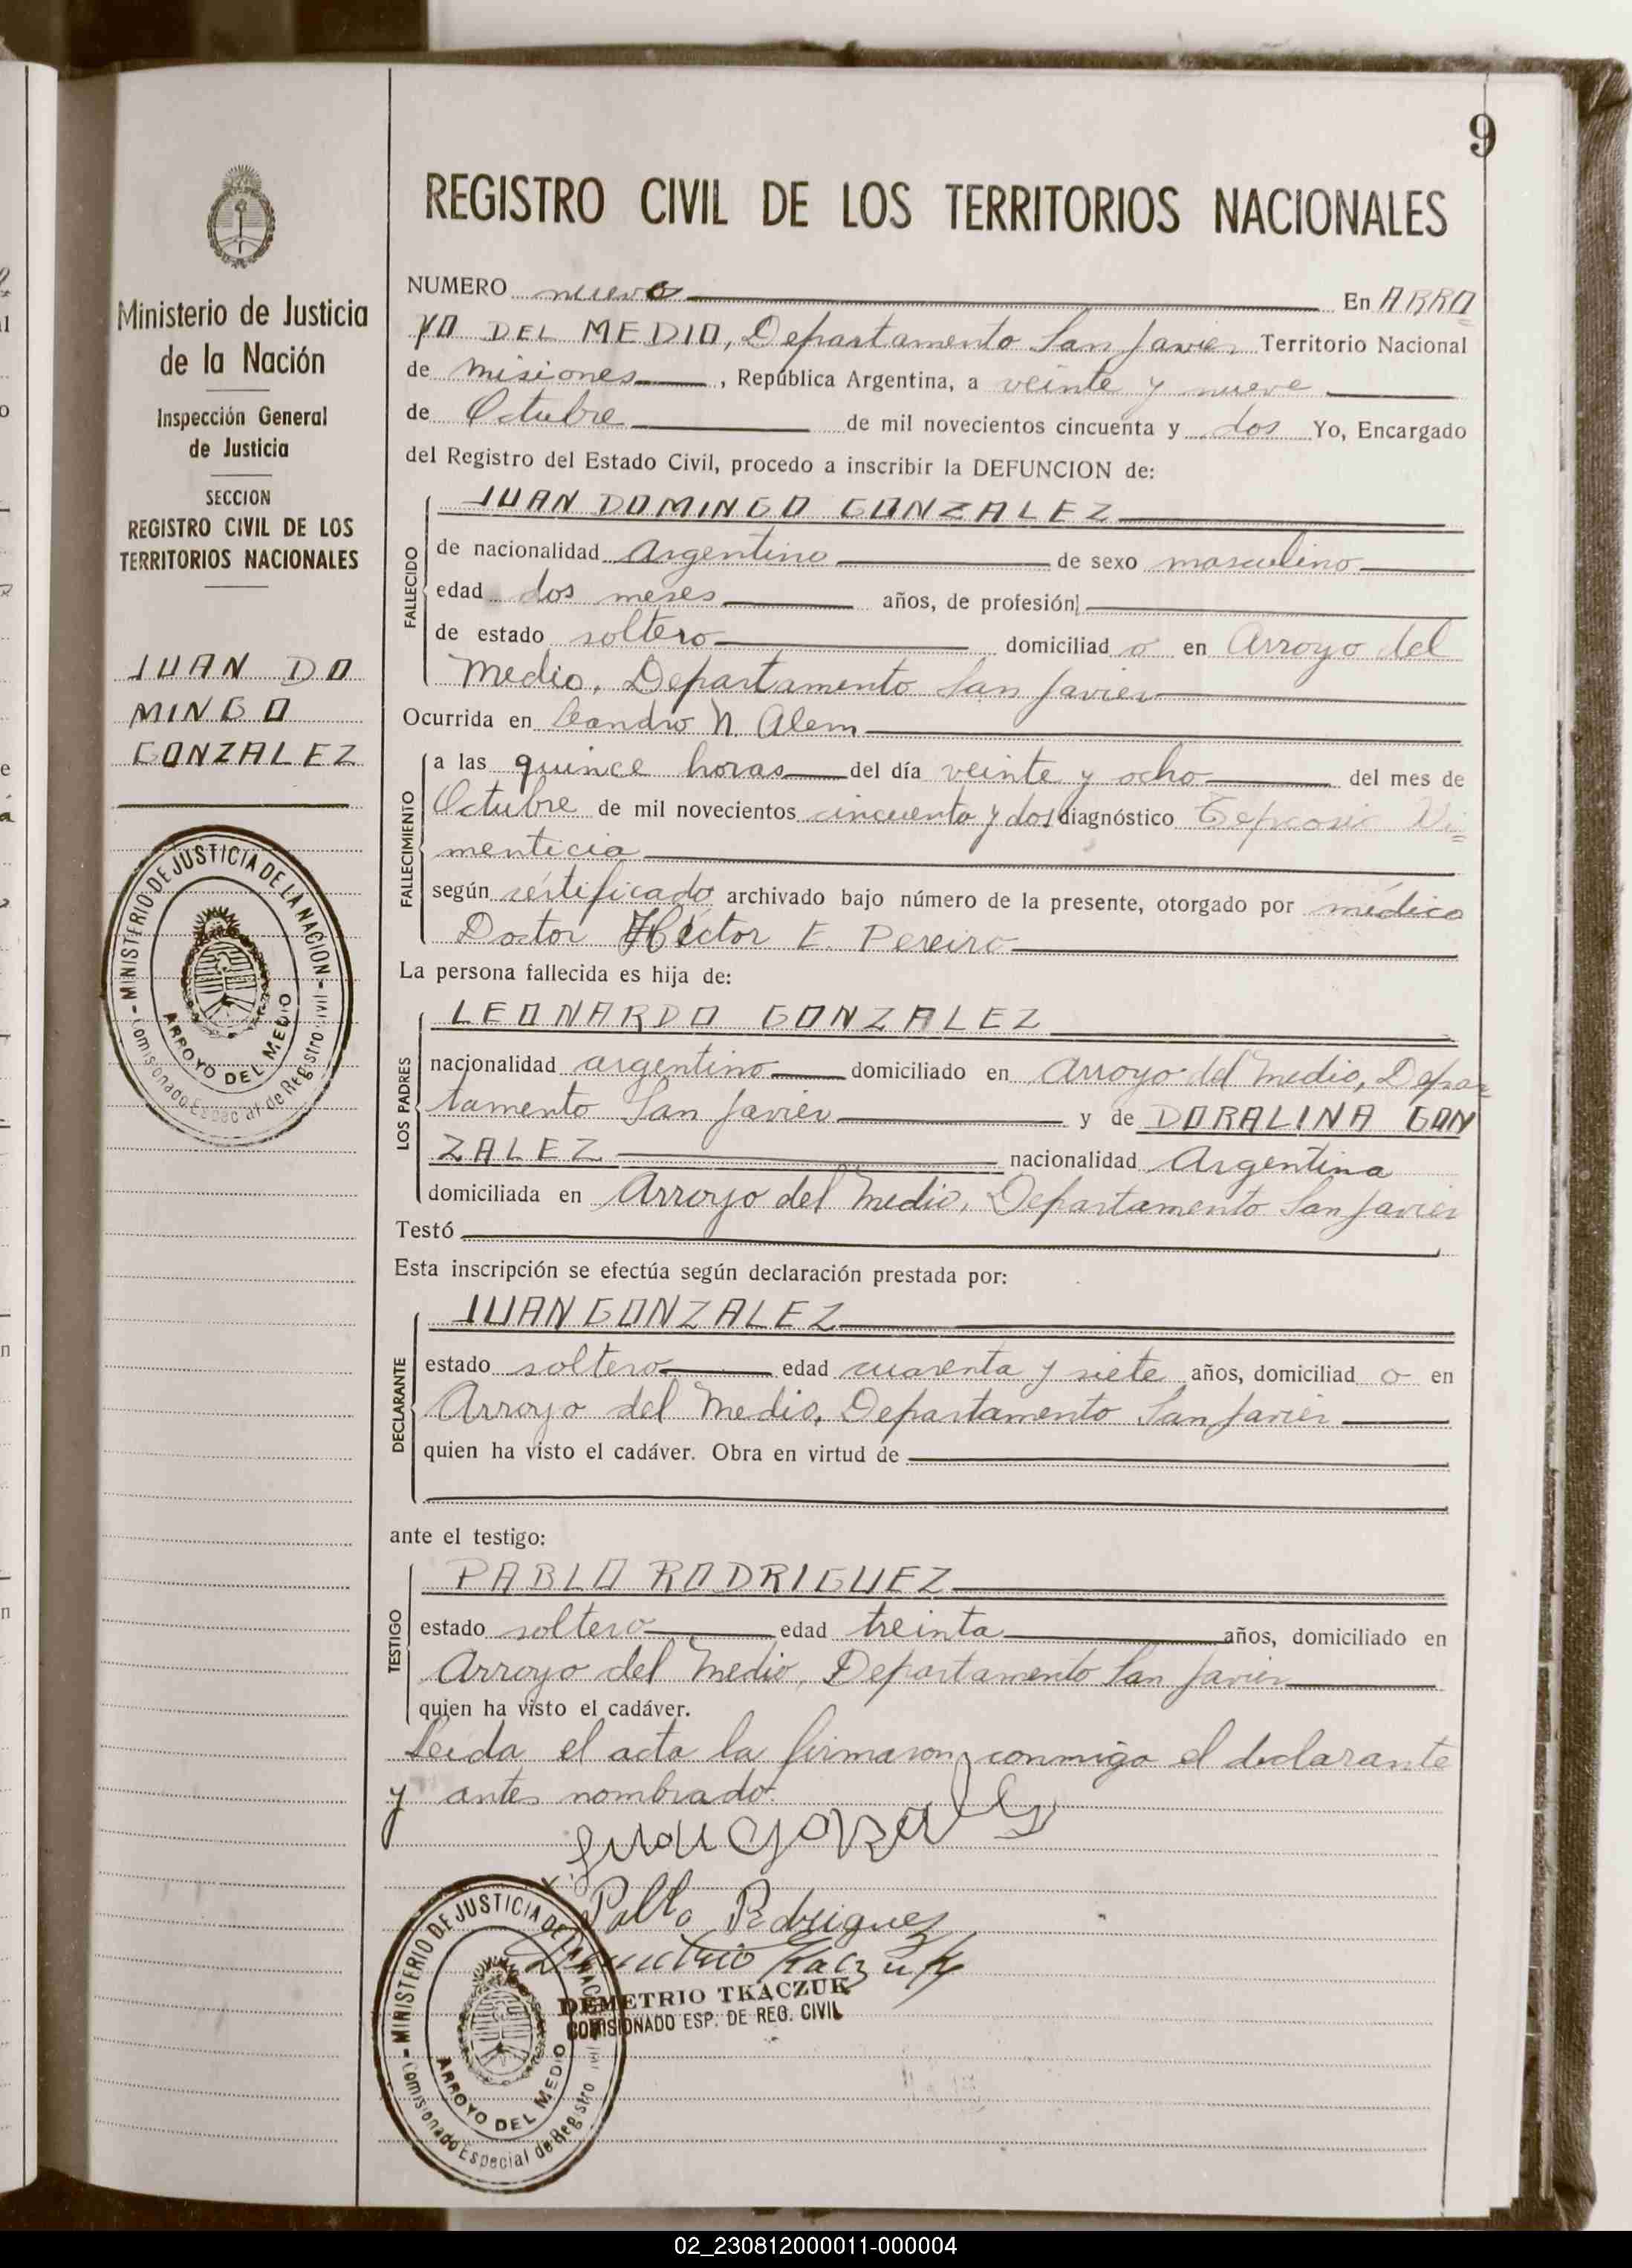 9
REGISTRO CIVIL DE LOS TERRITORIOS NACIONALES
Ministerio de Justicia
de la Nación
Inspección General
de Justicia
SECCION
REGISTRO CIVIL DE LOS
TERRITORIOS NACIONALES
JUAN DO
MINGO
GONZALEZ
MINISTERIO DE JUSTICIA DE LA NACION
ARROYO DEL MEDIO
Comisionado Especial de Registro Civil
NUMERO nueve En ARRO
YO DEL MEDIO, Departamento San Javier Territorio Nacional
de Misiones, República Argentina, a veinte y nueve
de Octubre de mil novecientos cincuenta y dos Yo, Encargado
del Registro del Estado Civil, procedo a inscribir la DEFUNCION de:
FALLECIDO
JUAN DOMINGO GONZALEZ
de nacionalidad Argentino de sexo masculino
edad dos meses años, de profesión
de estado soltero domiciliad o en Arroyo del
Medio, Departamento San Javier
Ocurrida en Leandro N. Alem
FALLECIMIENTO
a las quince horas del día veinte y ocho del mes de
Octubre de mil novecientos cincuenta y dos diagnóstico
menticia
según certificado archivado bajo número de la presente, otorgado por médico
Doctor Héctor E. Pereiro
La persona fallecida es hija de:
LOS PADRES
LEONARDO GONZALEZ
nacionalidad argentino domiciliado en Arroyo del Medio, Depar=
tamento San Javier y de DORALINA GON
ZALEZ nacionalidad Argentina
domiciliada en Arroyo del Medio, Departamento San Javier
Testó
Esta inscripción se efectúa según declaración prestada por:
DECLARANTE
JUAN GONZALEZ
estado soltero edad cuarenta y siete años, domiciliad o en
Arroyo del Medio, Departamento San Javier
quien ha visto el cadáver. Obra en virtud de
ante el testigo:
TESTIGO
PABLO RODRIGUEZ
estado soltero edad treinta años, domiciliado en
Arroyo del Medio, Departamento San Javier
quien ha visto el cadáver.
Leída el acta la firmaron conmigo el declarante
y antes nombrado.
Juan Gonzalez
Pablo Rodriguez
Demetrio Tkaczuk
DEMETRIO TKACZUK
COMISIONADO ESP. DE REG. CIVIL
MINISTERIO DE JUSTICIA DE LA NACION
ARROYO DEL MEDIO
Comisionado Especial de Registro Civil
02_230812000011-000004